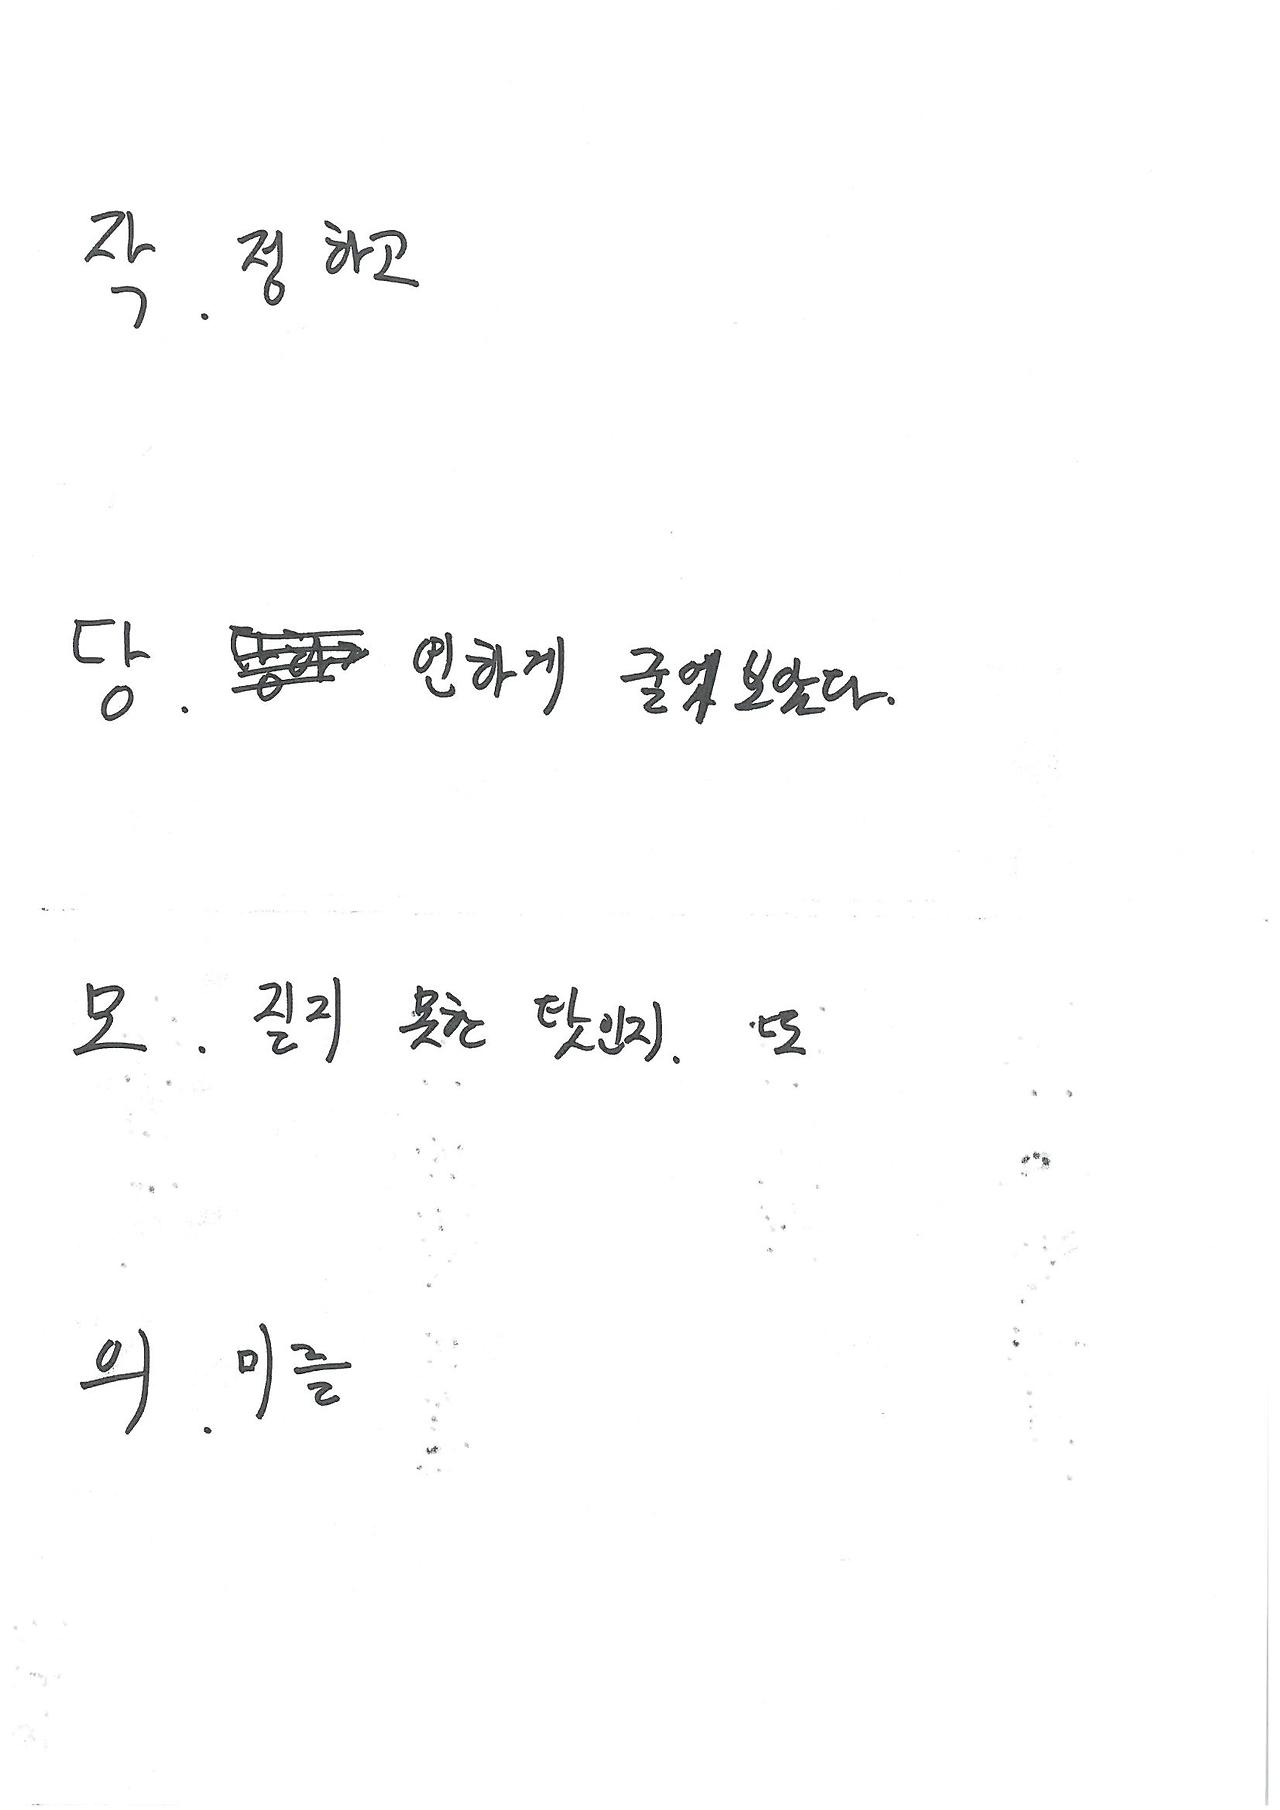 작. 정하고
당. 연하게 굴어보았다.
모. 질지 못한 탓인지. 또
의. 미를